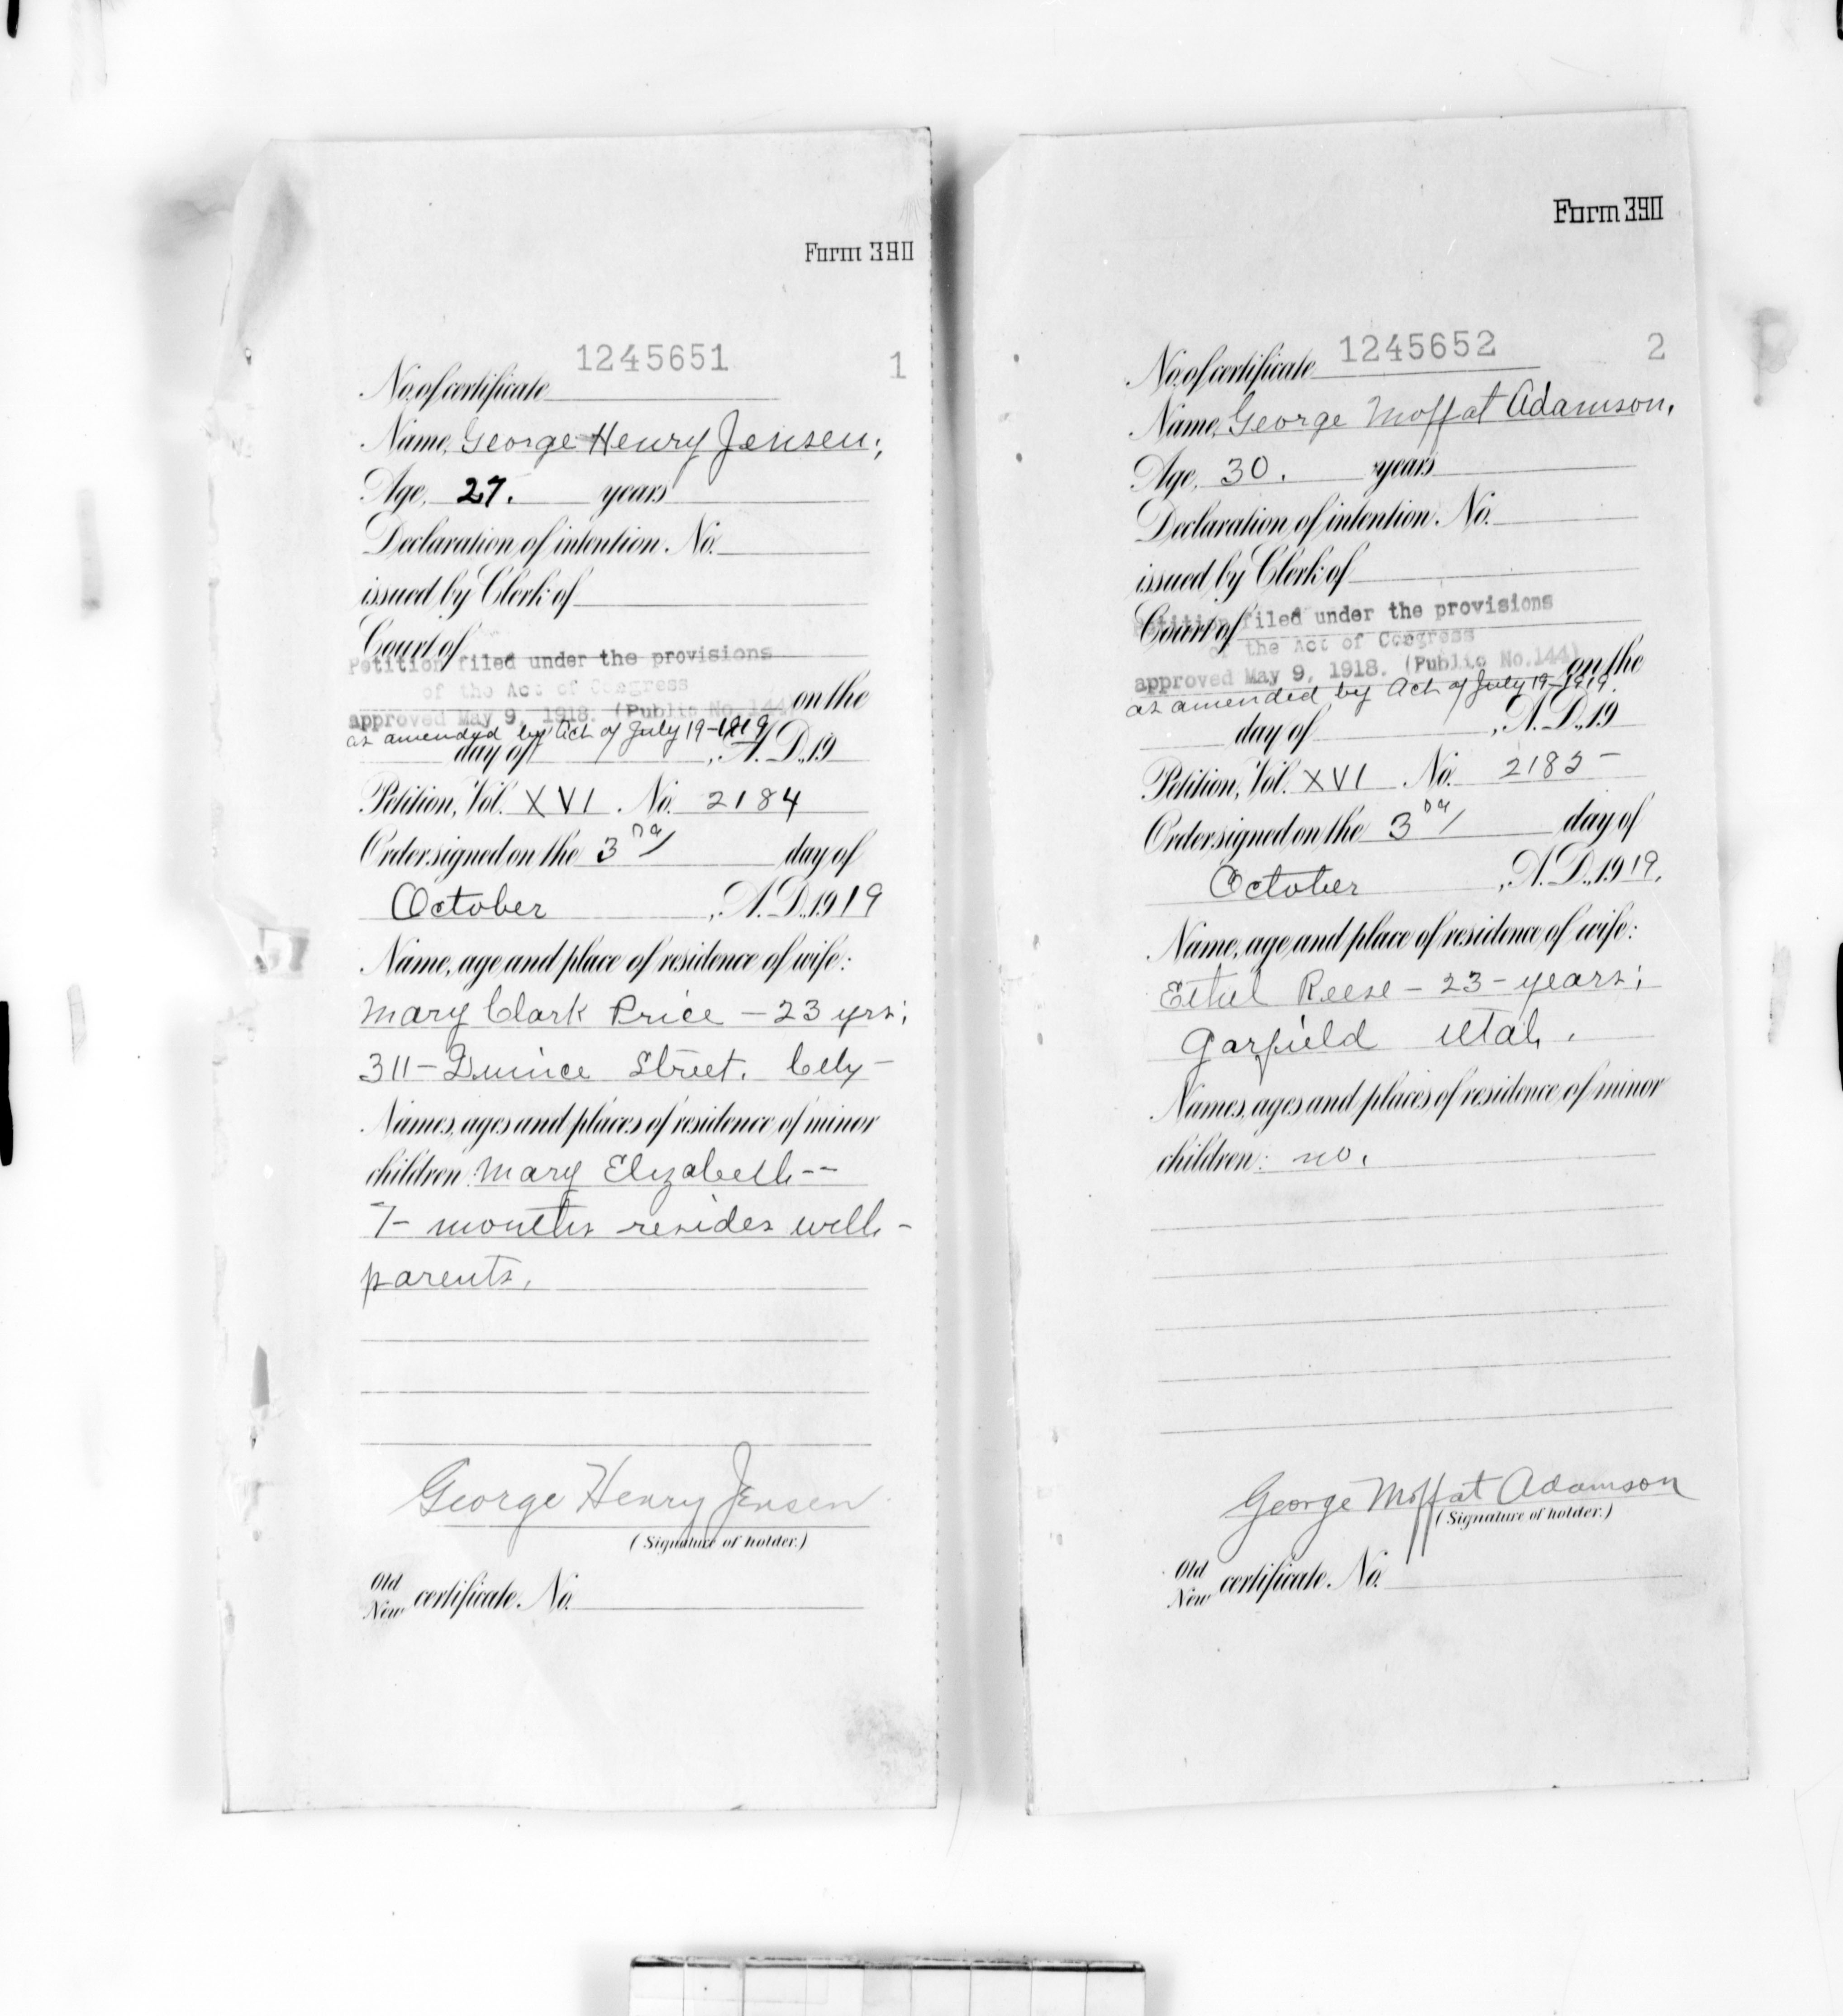 Form 390
1245651 1
No. of certificate
Name, George Henry Jensen;
Age, 27. years
Declaration of intention. No.
issued by Clerk of
Court of
Petition filed under the provisions
of the Act of Congress
on the
approved May 9, 1918. (Public No. 144)
as amended by Act of July 19-1919
day of , A.D., 19
Petition, Vol. XVI. No. 2184
Order signed on the 3rd day of
October , A.D., 1919
Name, age and place of residence of wife:
Mary Clark Price - 23 yrs;
311 - Street. City -
Names, ages and places of residence of minor
children: Mary Elizabeth --
7- months resides with -
parents.
George Henry Jensen
(Signature of holder.)
Old
New certificate. No.
Form 390
1245652 2
No. of certificate
Name, George Moffat Adamson,
Age, 30. years
Declaration of intention. No.
issued by Clerk of
Petition filed under the provisions
Court of
of the Act of Congress
approved May 9, 1918. (Public No. 144) on the
as amended by Act of July 19-1919.
day of , A.D., 19
Petition, Vol. XVI No. 2185 -
Order signed on the 3rd day of
October , A.D., 1919.
Name, age and place of residence of wife:
Ethel Reese - 23 - years;
Garfield Utah.
Names, ages and places of residence of minor
children: no.
George Moffat Adamson
(Signature of holder.)
Old
New certificate. No.